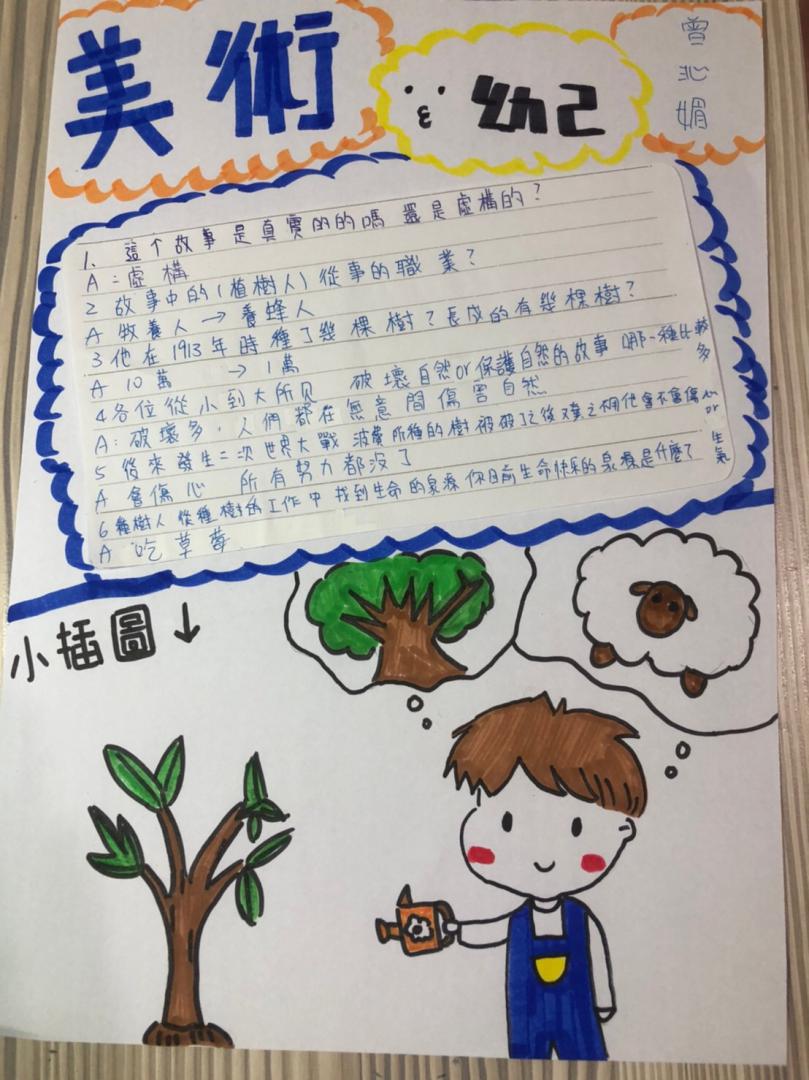 美術
幼己
曾沁媚
1、這个故事是真實的的嗎 還是虛構的?
A:虛構
2 故事中的(植樹人)從事的職業?
A 牧養人→養蜂人
3 他在1913年時種了幾棵樹?長成的有幾棵樹?
A 10萬 → 1萬
4 各位從小到大所見 破壞自然or保護自然的故事 哪一種比較多
A:破壞多,人們都在無意間傷害自然
5 後來發生二次世界大戰 波費所種的樹被破了之後 種之樹他會不會傷心or生氣
A 會傷心 所有努力都沒了
6 種樹人 從種樹的工作中 找到生命的泉源 你目前生命快樂的泉源是什麼了
A 吃草莓
小插圖↓